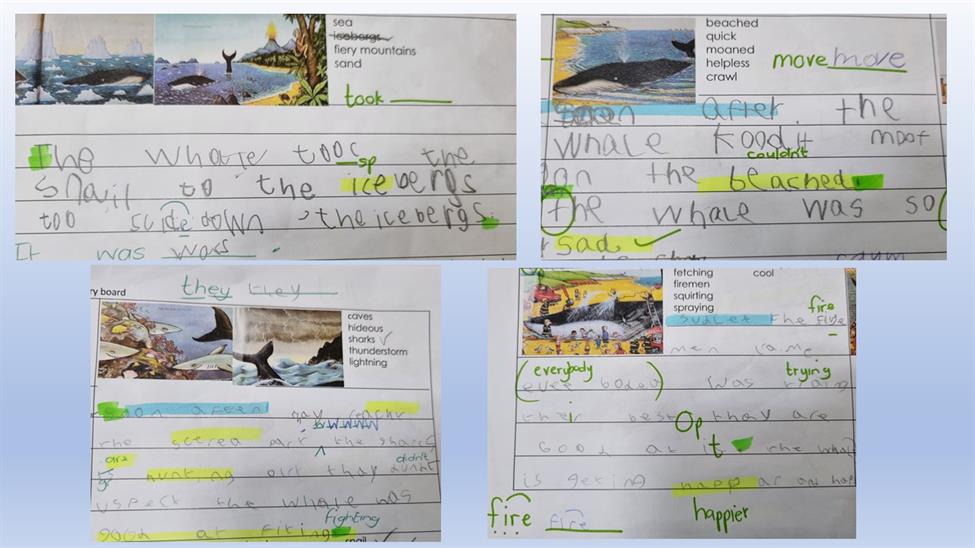 sea
icebergs
fiery mountains
sand
took
The whale tooc sp the
snail to the icebergs
too scide down the icebergs.
It was was
beached
quick
moaned
helpless
crawl
move move
Soon after. the
whale Koodt moof
couldn't
on the beached.
the whale was so
sad.
ry board
they they
caves
hideous
sharks
thunderstorm
lightning
soon after
the scerea the sharc
are
hunting out they
didn't
uspect the whale was
good at fiting
fighting
fetching cool
firemen
squirting
spraying
fire
The
men came
everybody trying
was
their best they are
Op
Good at it the whal
is geting happ ar and hap
happier
fire fire